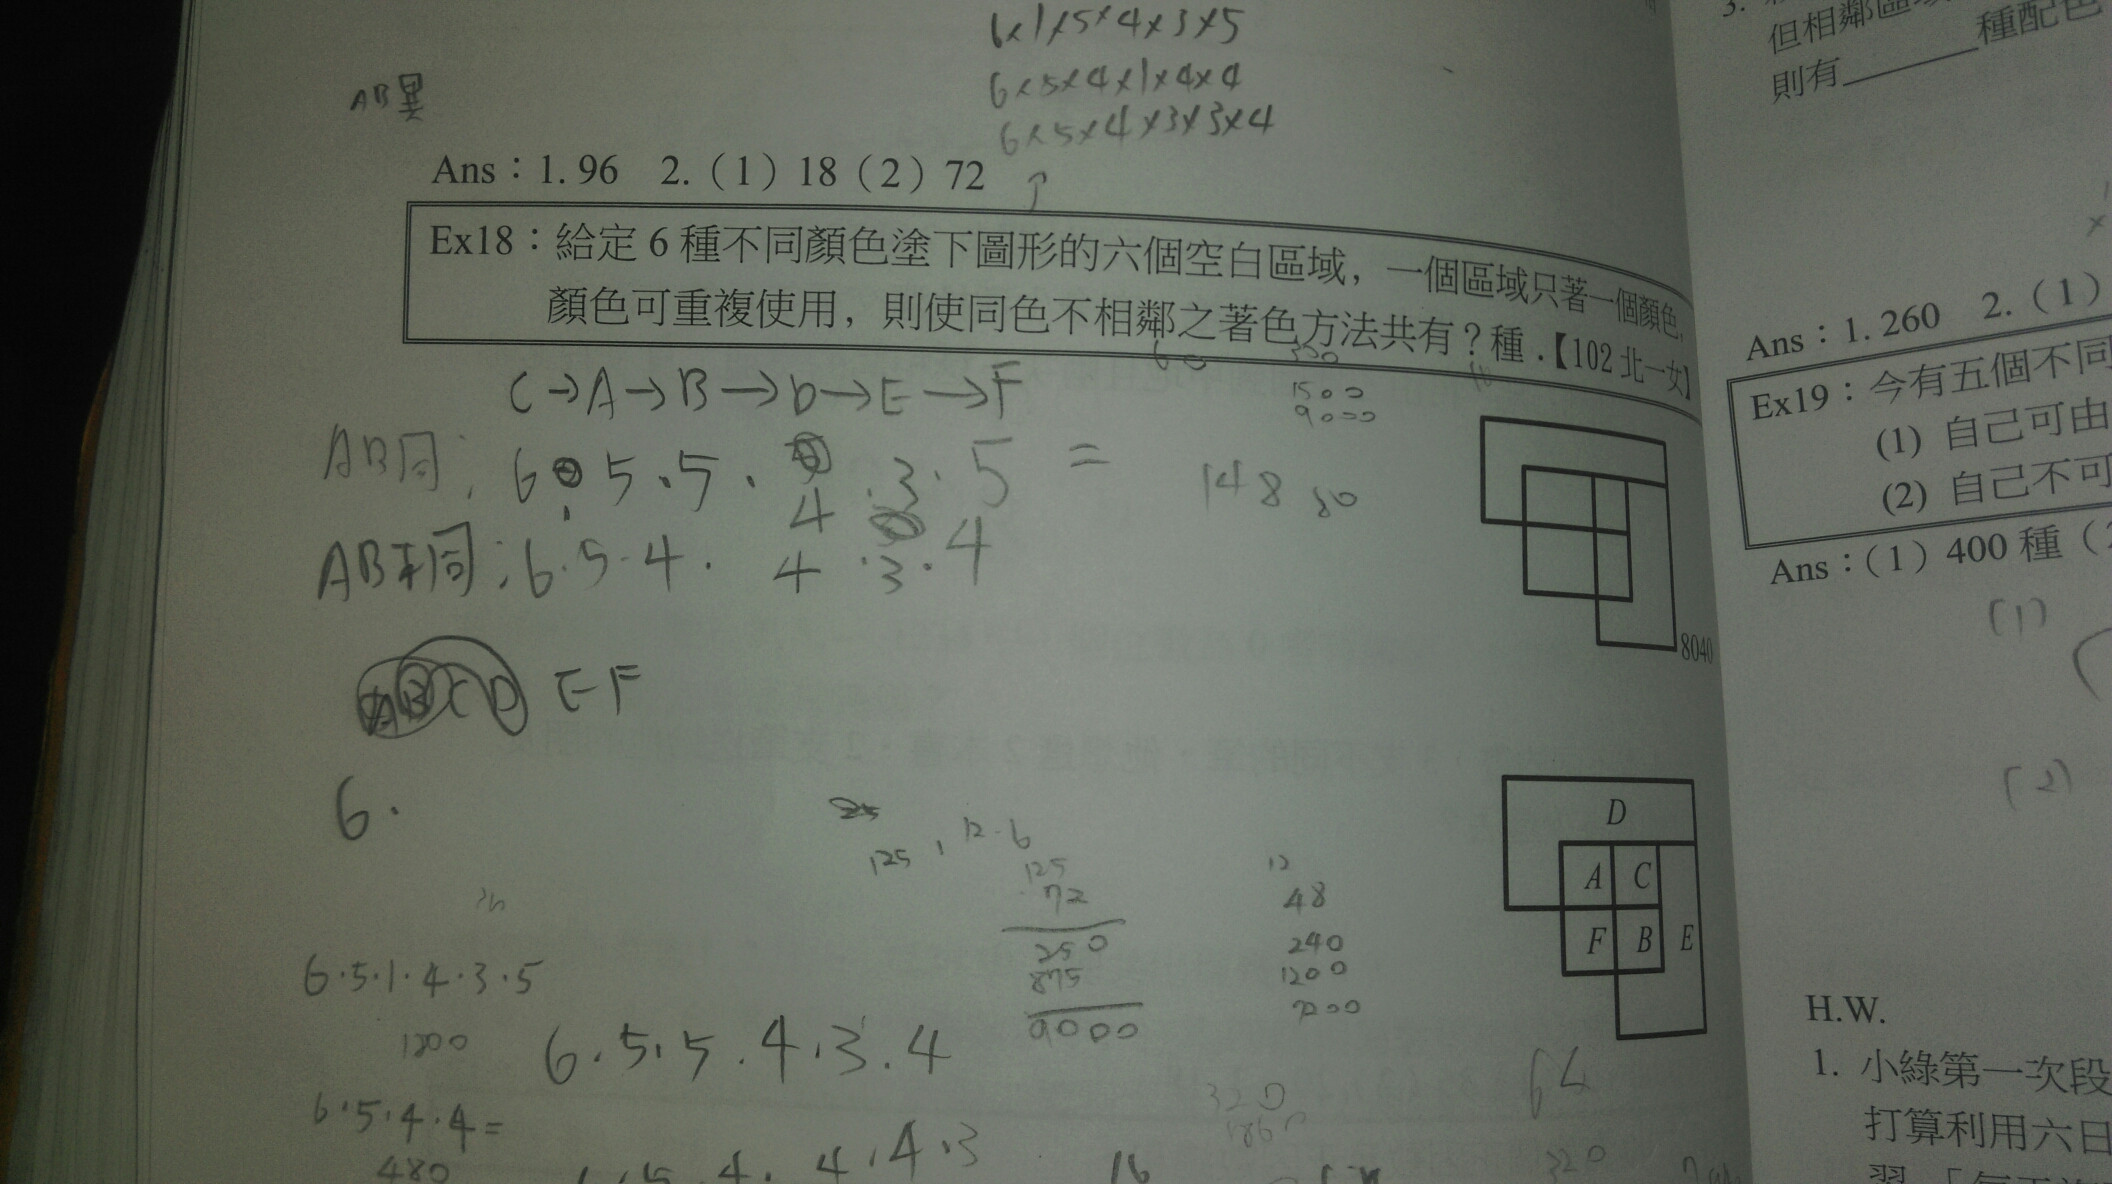 6×1×5×4×3×5
6×5×4×1×4×4
6×5×4×3×3×4
AB異
Ans：1. 96 2.（1）18（2）72
Ex18：給定 6 種不同顏色塗下圖形的六個空白區域，一個區域只著一個顏色，
顏色可重複使用，則使同色不相鄰之著色方法共有？種．【102 北一女】
60
320
1500
9000
C→A→B→D→E→F
AB同： 6 · 5 · 5 · 4 · 3 · 5 =
14880
AB不同：6·5·4· 4 ·3·4
8040
A B C D E F
6·
D
A C
F B E
125 , 12·6
125
72
250
875
9000
12
48
240
1200
7200
6·5·1·4·3·5
1800
6·5·5·4·3·4
6·5·4·4=
480
4·4·3
16
320
64
320
3.
但相鄰區域
種配色
則有
Ans：1. 260 2.（1）
Ex19：今有五個不同
(1) 自己可由
(2) 自己不可
Ans：（1）400 種（2
(1)
(2)
H.W.
1. 小綠第一次段
打算利用六日
習